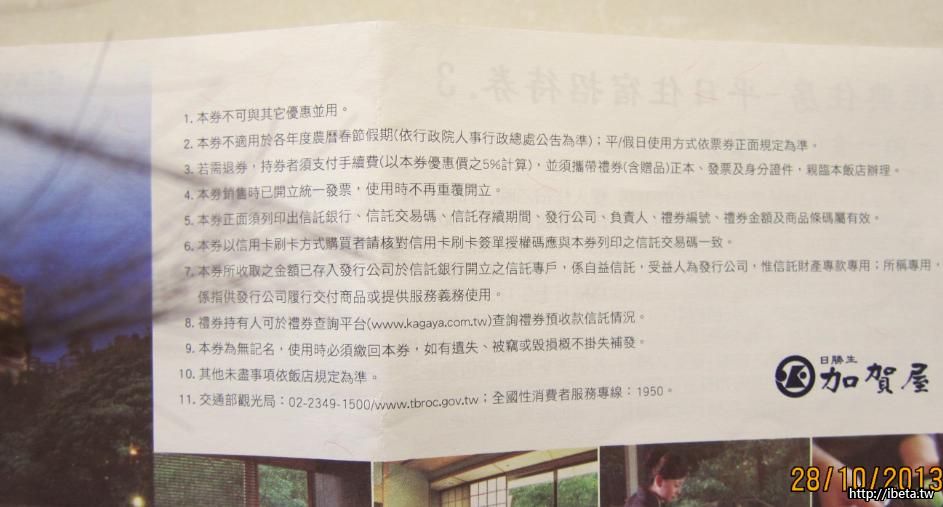 1. 本券不可與其它優惠並用。
2. 本券不適用於各年度農曆春節假期(依行政院人事行政總處公告為準)；平/假日使用方式依票券正面規定為準。
3. 若需退券，持券者須支付手續費(以本券優惠價之5%計算)，並須攜帶禮券(含贈品)正本、發票及身分證件，親臨本飯店辦理。
4. 本券銷售時已開立統一發票，使用時不再重覆開立。
5. 本券正面須列印出信託銀行、信託交易碼、信託存續期間、發行公司、負責人、禮券編號、禮券金額及商品條碼屬有效。
6. 本券以信用卡刷卡方式購買者請核對信用卡刷卡簽單授權碼應與本券列印之信託交易碼一致。
7. 本券所收取之金額已存入發行公司於信託銀行開立之信託專戶，係自益信託，受益人為發行公司，惟信託財產專款專用；所稱專用，
係指供發行公司履行交付商品或提供服務義務使用。
8. 禮券持有人可於禮券查詢平台(www.kagaya.com.tw)查詢禮券預收款信託情況。
9. 本券為無記名，使用時必須繳回本券，如有遺失、被竊或毀損概不掛失補發。
10. 其他未盡事項依飯店規定為準。
11. 交通部觀光局：02-2349-1500/www.tbroc.gov.tw；全國性消費者服務專線：1950。
日勝生
加賀屋
28/10/2013
http://ibeta.tw